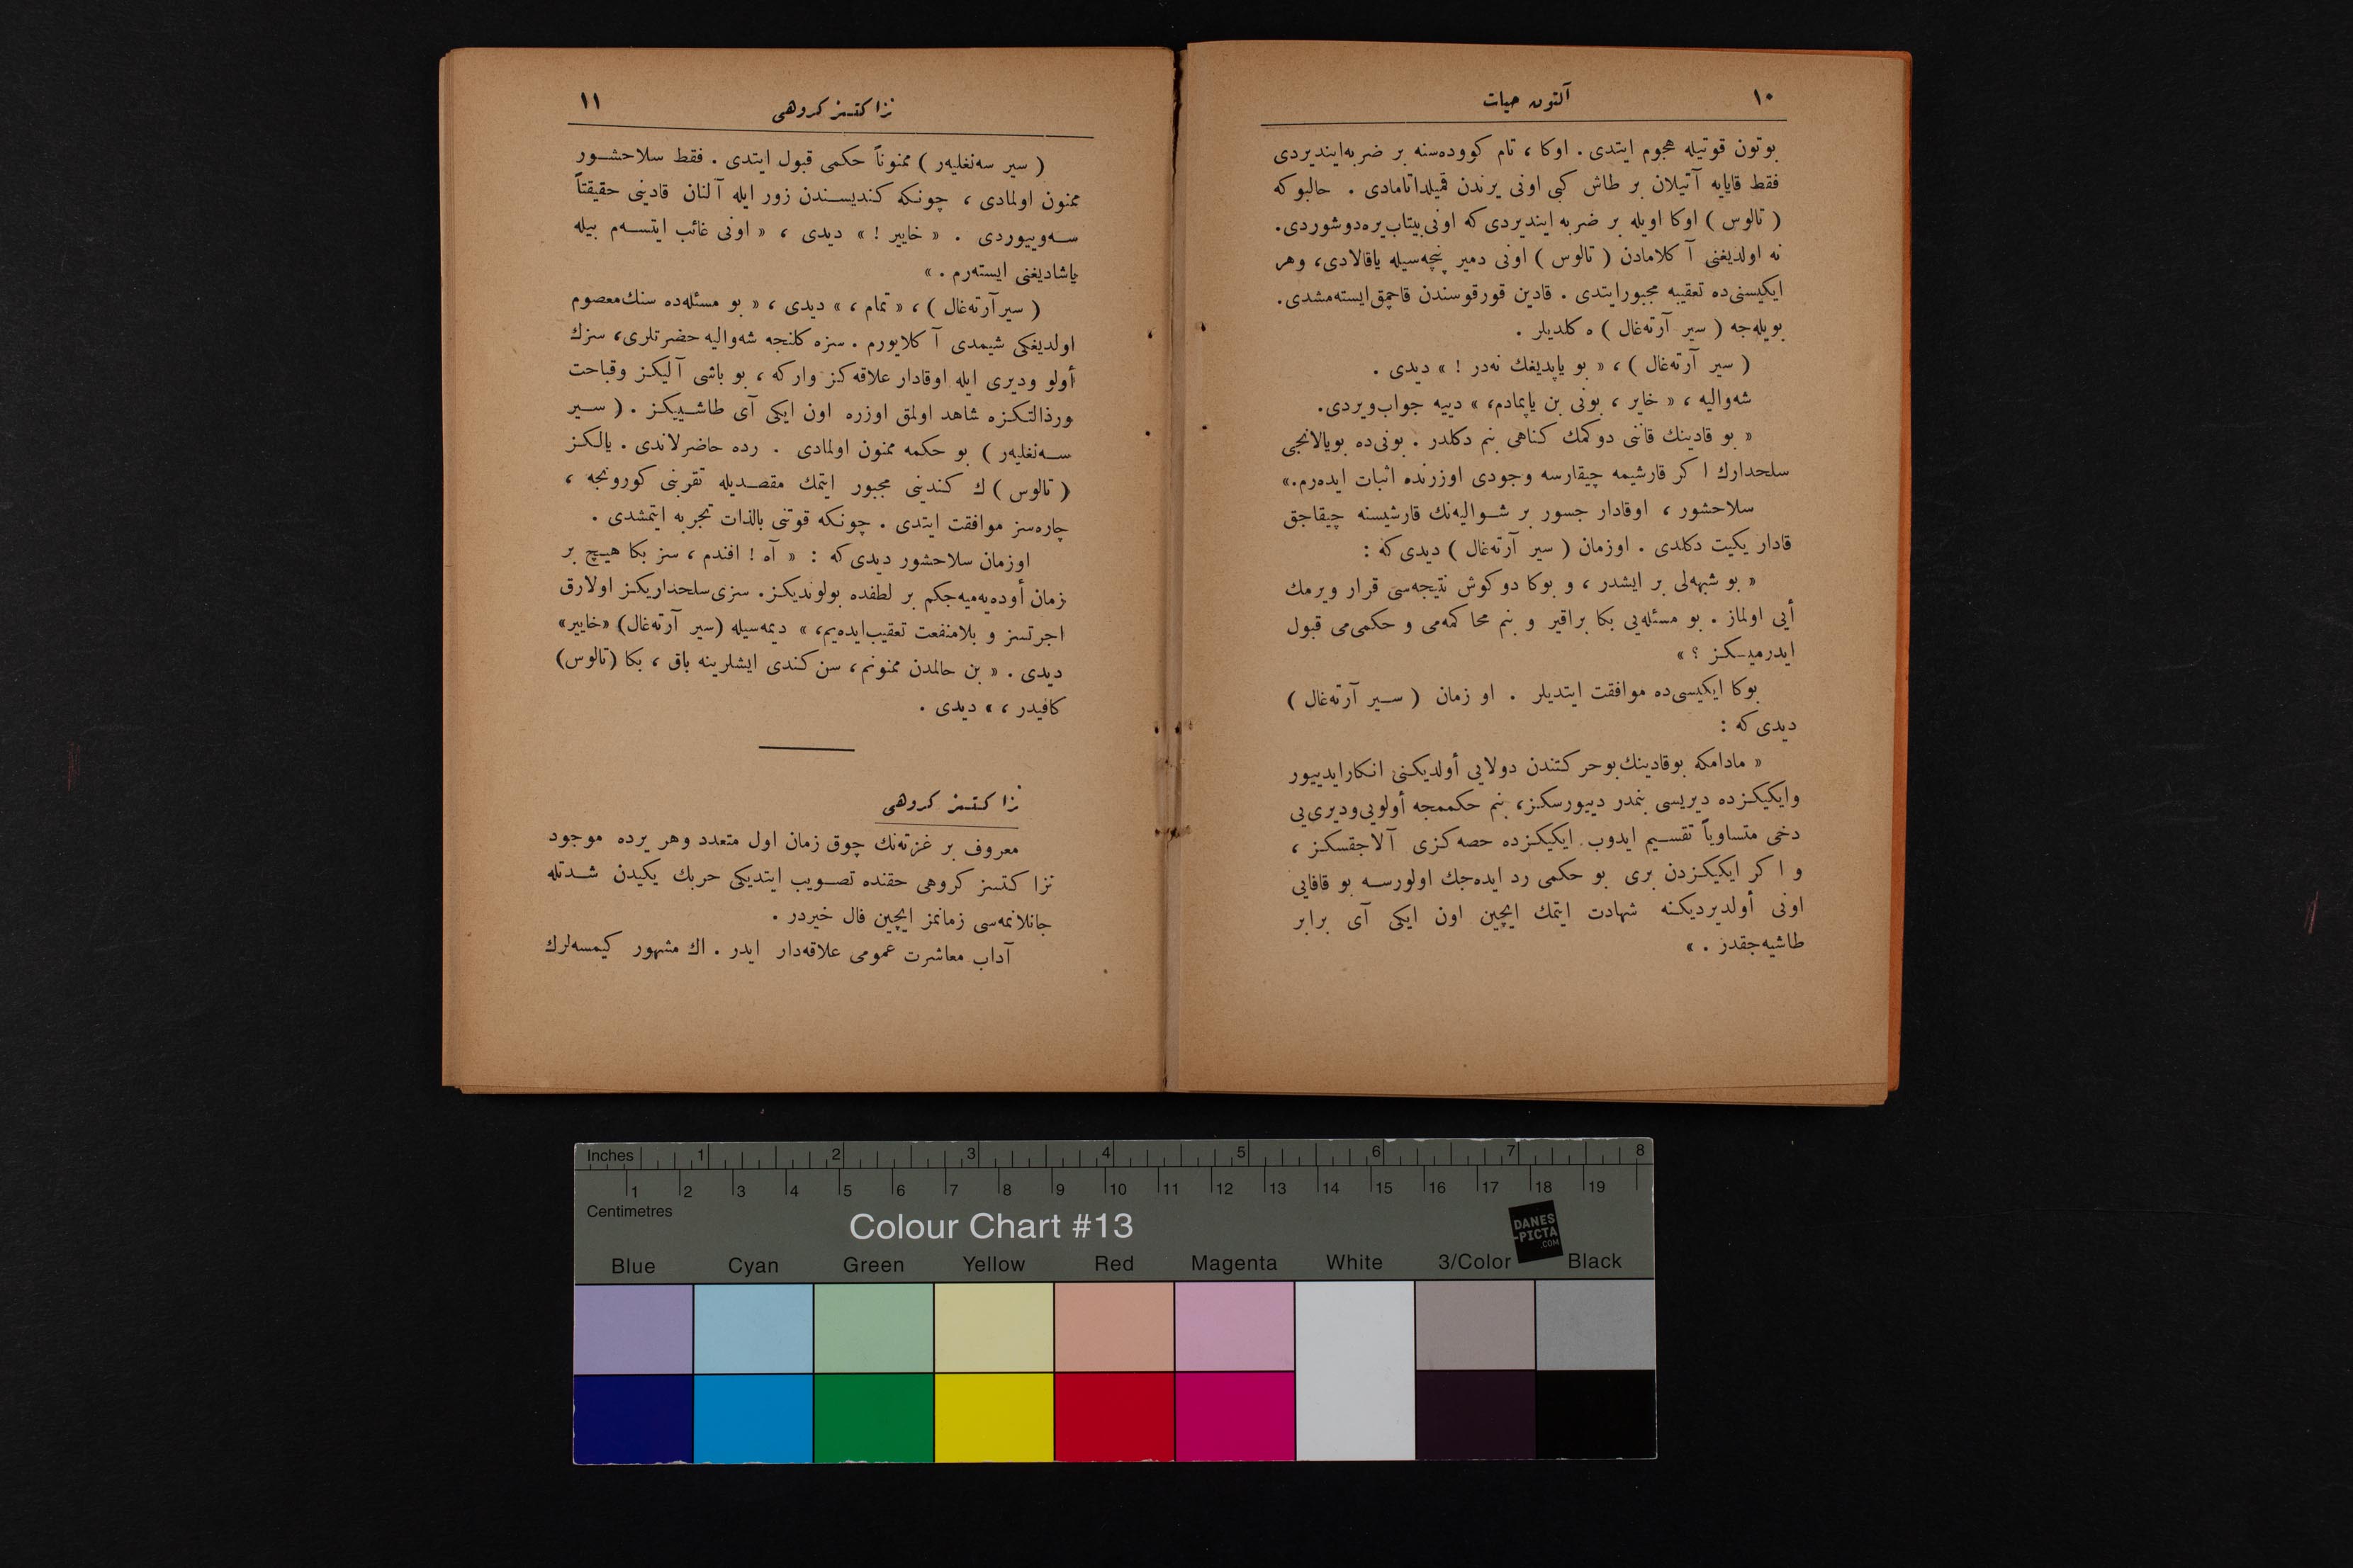 ١٠
آلتون حيات
بوتون قوتيله هجوم ايتدى . اوكا ، تام كووده‌سنه بر ضربه‌اينديردى
فقط قايايه آتيلان بر طاش كبى اونى يرندن قميلداتامادى . حالبوكه
( تالوس ) اوكا اويله بر ضربه اينديردى‌كه اونى‌بيتاب‌يره‌دوشوردى.
نه اولديغنى آ كلامادن ( تالوس ) اونى دمير پنچه‌سيله ياقالادى، وهر
ايكيسنى‌ده تعقيبه مجبورايتدى . قادين قورقوسندن قاچمق‌ايسته‌مشدى.
بويله‌جه ( سير آرته‌غال ) ه كلديلر .
( سير آرته‌غال ) ، « بو ياپديغك نه‌در ! » ديدى .
شه‌واليه ، « خاير ، بونى بن ياپمادم، » دييه جواب‌ويردى.
« بو قادينك قاننى دوكمك كناهى بنم دكلدر . بونى‌ده بويالانجى
سلحدارك ا كر قارشيمه چيقارسه وجودى اوزرنده اثبات ايده‌رم.»
سلاحشور ، اوقادار جسور بر شواليه‌نك قارشيسنه چيقاجق
قادار يكيت دكلدى . اوزمان ( سير آرته‌غال ) ديدى‌كه :
« بو شبهه‌لى بر ايشدر ، و بوكا دوكوش نتيجه‌سى قرار ويرمك
أيى اولماز . بو مسئله‌يى بكا براقير و بنم محا كمه‌مى و حكمى‌مى قبول
ايدرميـكز ؟ »
بوكا ايكيسى‌ده موافقت ايتديلر . او زمان ( سير آرته‌غال )
ديدى‌كه :
« مادامكه بوقادينك‌بوحركتندن دولايى أولديكنى انكارايدييور
وايكيكزده ديريسى بنمدر دييورسكز، بنم حكممجه أولويى‌وديرى‌يى
دخى متساوياً تقسيم ايدوب ايكيكزده حصه‌كزى آلاجقسكز ،
و ا كر ايكيكزدن برى بو حكمى رد ايده‌جك اولورسه بو قافايى
اونى أولديرديكنه شهادت ايتمك ايچين اون ايكى آى برابر
طاشيه‌جقدر . »
نزاكتسز كروهى
١١
( سير سه‌نغليه‌ر ) ممنوناً حكمى قبول ايتدى . فقط سلاحشور
ممنون اولمادى ، چونكه كنديسندن زور ايله آلنان قادينى حقيقتاً
سه‌وييوردى . « خايير ! » ديدى ، « اونى غائب ايتسه‌م بيله
ياشاديغنى ايسته‌رم . »
( سيرآرته‌غال ) ، « تمام ، » ديدى ، « بو مسئله‌ده سنك‌معصوم
اولديغكى شيمدى آ كلايورم . سزه كلنجه شه‌واليه حضرتلرى، سزك
أولو وديرى ايله اوقادار علاقه‌كز واركه ، بو باشى آليكز وقباحت
ورذالتكزه شاهد اولمق اوزره اون ايكى آى طاشييكز . ( سير
سه‌نغليه‌ر ) بو حكمه ممنون اولمادى . رده حاضرلاندى . يالكز
( تالوس ) ك كندينى مجبور ايتمك مقصديله تقربنى كورونجه ،
چاره‌سز موافقت ايتدى . چونكه قوتنى بالذات تجربه ايتمشدى .
اوزمان سلاحشور ديدى‌كه : « آه ! افندم ، سز بكا هيچ بر
زمان أوده‌يه‌ميه‌جكم بر لطفده بولونديكز. سزى‌سلحداريكز اولارق
اجرتسز و بلامنفعت تعقيب‌ايده‌يم، » ديمه‌سيله (سير آرته‌غال) «خايير»
ديدى . « بن حالمدن ممنونم، سن كندى ايشلرينه باق ، بكا (تالوس)
كافيدر ، » ديدى .
نزاكتسز كروهى
معروف بر غزته‌نك چوق زمان اول متعدد وهر يرده موجود
نزا كتسز كروهى حقنده تصويب ايتديكى حربك يكيدن شدتله
جانلانمه‌سى زمانمز ايچين فال خيردر .
آداب معاشرت عمومى علاقه‌دار ايدر . اك مشهور كيمسه‌لرك
Inches 1 2 3 4 5 6 7 8
1 2 3 4 5 6 7 8 9 10 11 12 13 14 15 16 17 18 19
Centimetres
Colour Chart #13
DANES
-PICTA
.COM
Blue Cyan Green Yellow Red Magenta White 3/Color Black